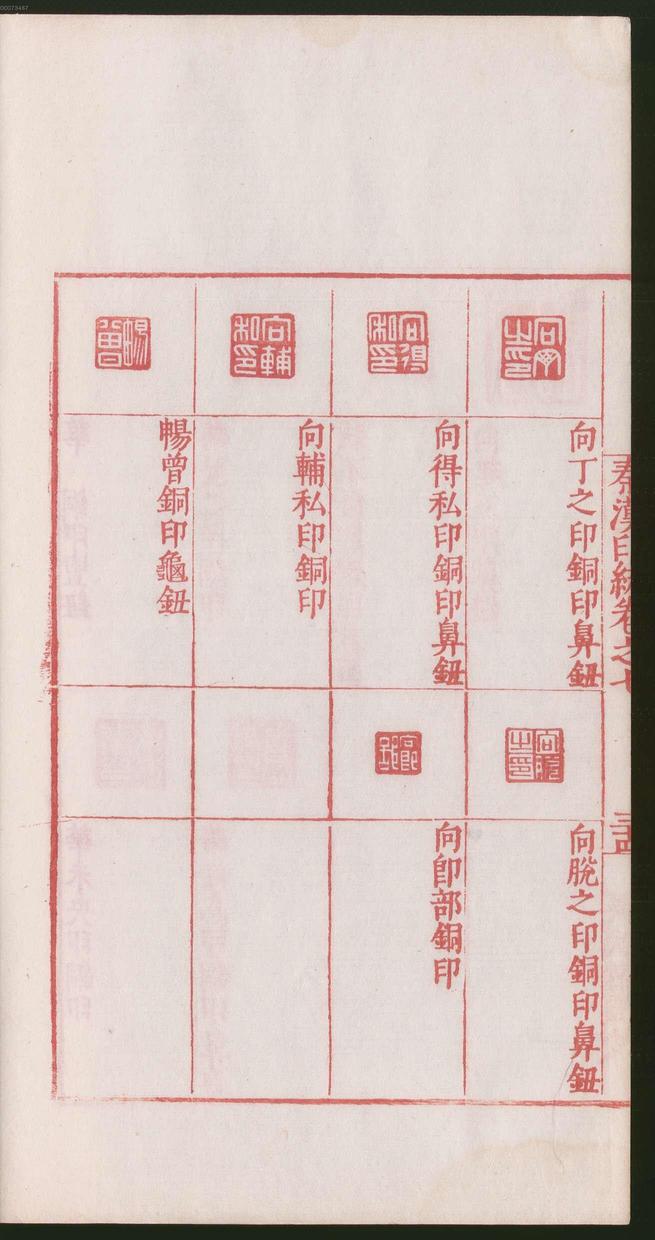 00073467
秦漢印統卷之七
向丁之印銅印鼻鈕
向得私印銅印鼻鈕
向輔私印銅印
暢曾銅印龜鈕
向脫之印銅印鼻鈕
向卽部銅印